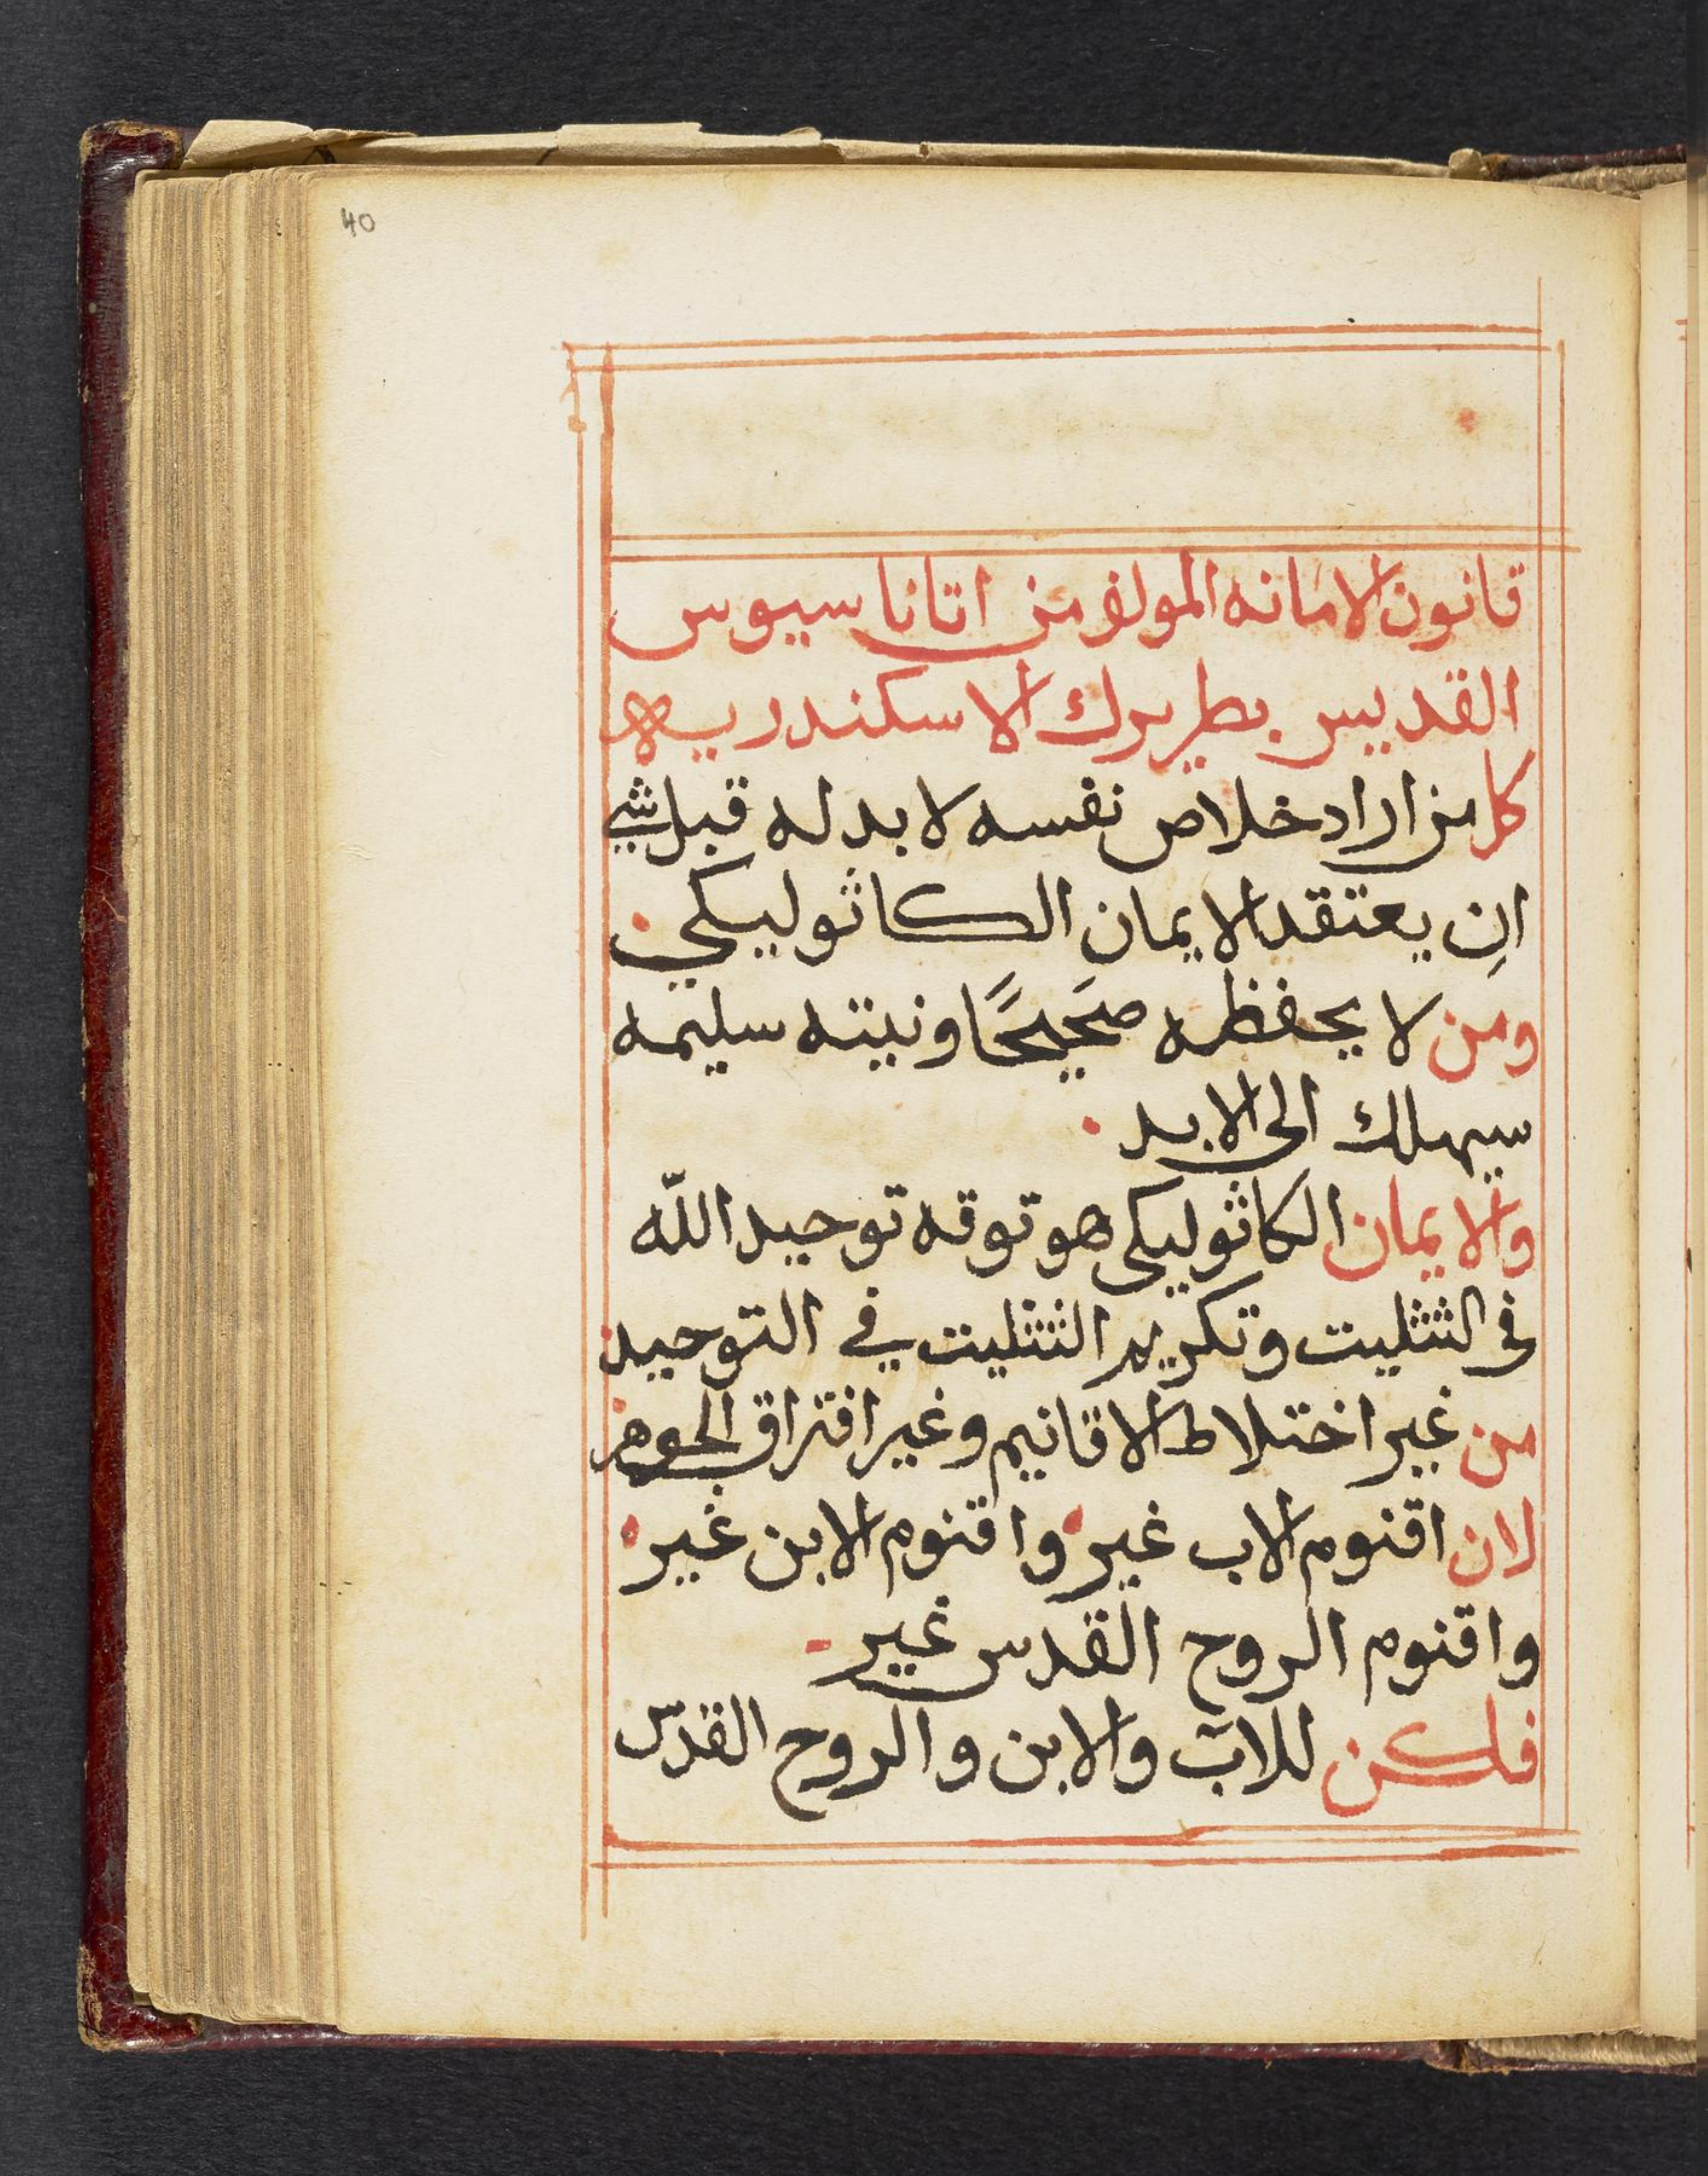 40
قانون الامانه المولف من اتاناسيوس
القديس بطريرك الاسكندريه
كل من اراد خلاص نفسه لا بد له قبل شي
ان يعتقد الايمان الكاثوليكي
ومن لا يحفظه صَحيحًا ونيته سليمه
سيهلك الى الابد
والايمان الكاثوليكي هو توقه توحيد اللّه
في التثليت وتكريم التثليت في التوحيد
من غير اختلاط الاقانيم وغير افتراق الجوهر
لان اقنوم الاب غير واقنوم الابن غير
واقنوم الروح القدس غير
فلكن للاب والابن والروح القدس